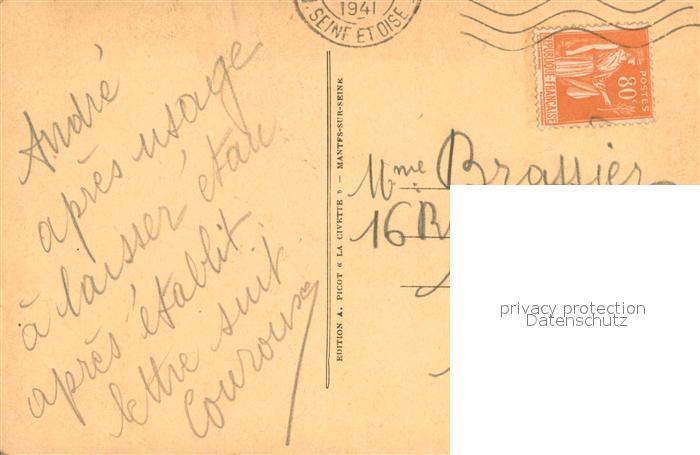 André
après usage
à laisser étau
après établit
lettre suit
1941
SEINE ET OISE
EDITION A. PICOT « LA CIVETTE » — MANTES-SUR-SEINE
POSTES
80c
REPUBLIQUE FRANÇAISE
Mme Brassier
16 R
privacy protection
Datenschutz